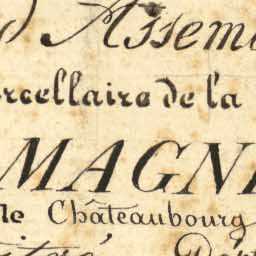 d'Assem
rcellaire de la
MAGN
de Châteaubourg
Vitré Dép